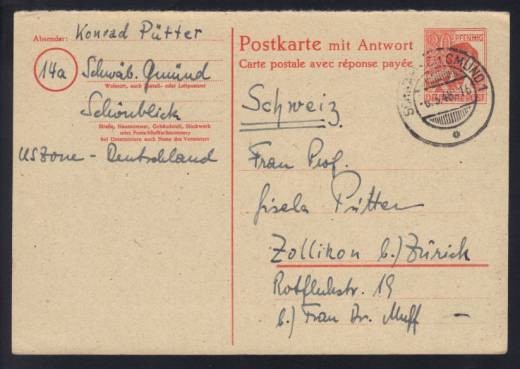 Absender: Konrad Pütter
14a Schwäb. Gmünd
Wohnort, auch Zustell- oder Leitpostamt
Schönblick
Straße, Hausnummer, Gebäudeteil, Stockwerk
oder Postschließfachnummer;
bei Untermietern auch Name des Vermieters
USZone - Deutschland
Postkarte mit Antwort
Carte postale avec réponse payée
PFENNIG
DEUTSCHE POST
GMÜND 1
Schweiz
Frau Prof.
Gisela Pütter
Zollikon b./Zürich
Rotfluhstr. 19
b./ Frau Dr. Muff -